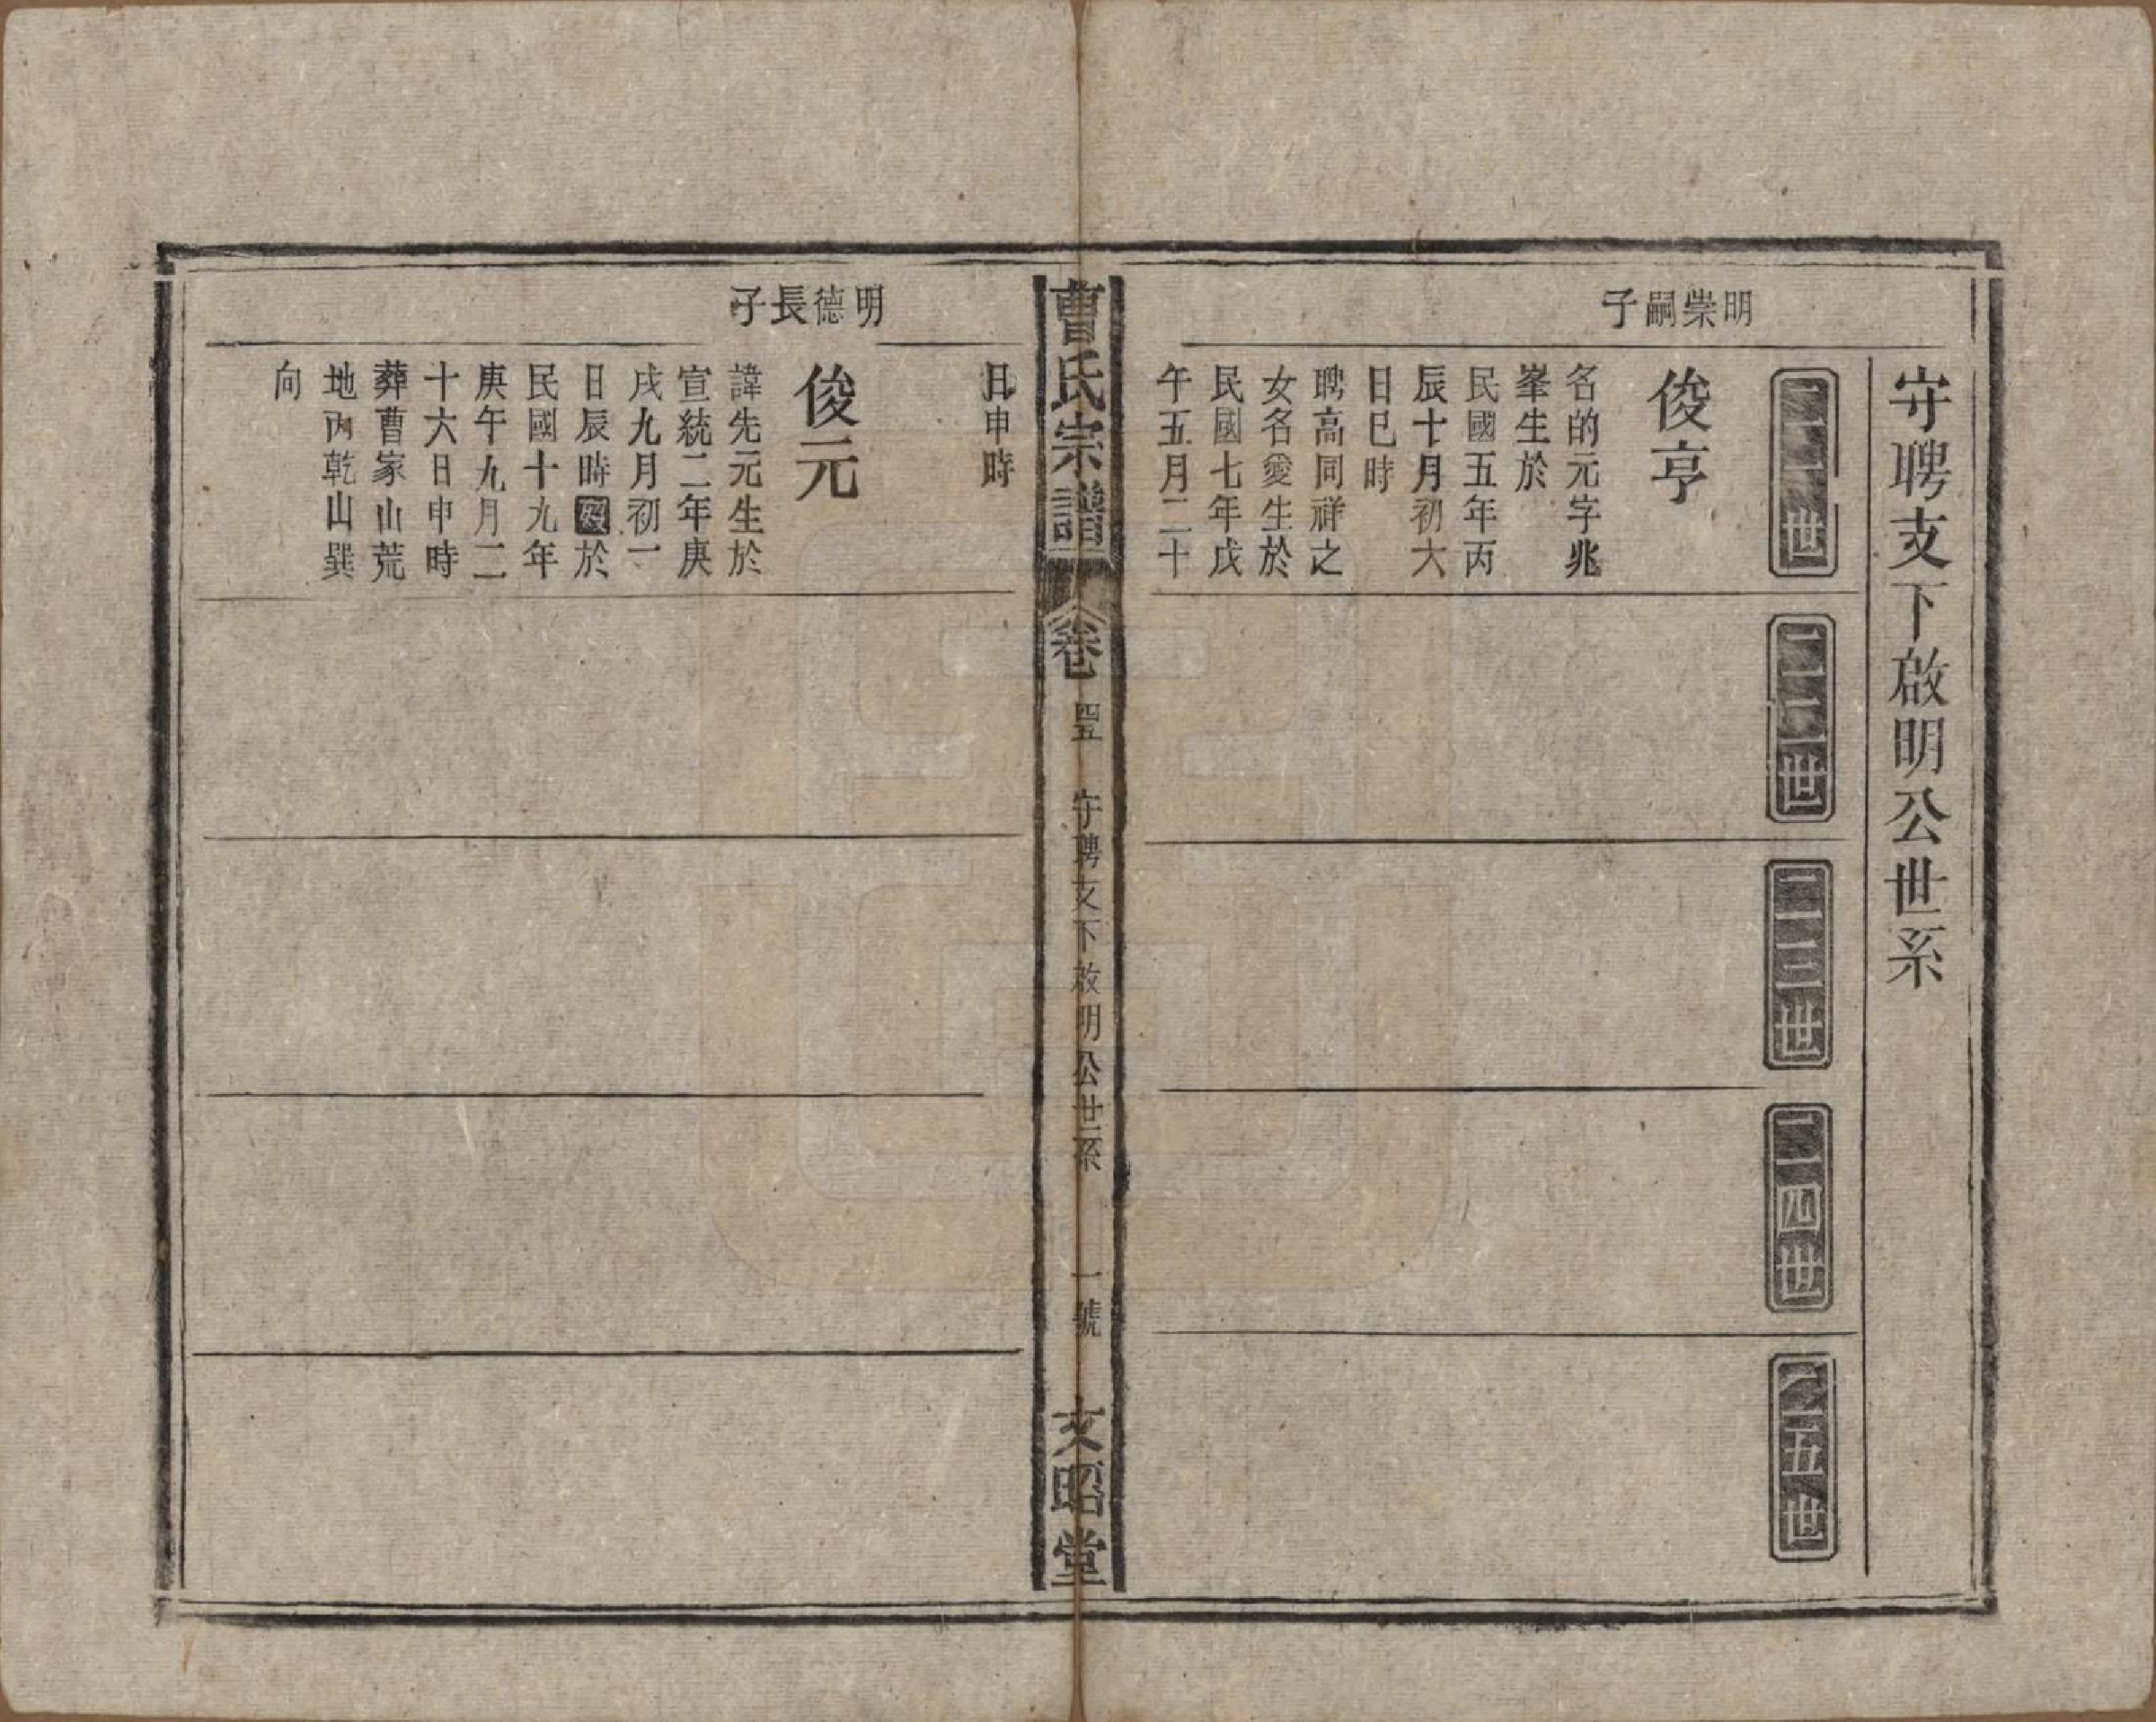 守聘支下啟明公世系
二一世
二二世
二三世
二四世
二五世
明崇嗣子
俊亨
名的元字兆
峯生於
民國五年丙
辰十月初六
日巳時
聘高同祥之
女名愛生於
民國七年戊
午五月二十
曹氏宗譜
卷 四五 守聘支下啟明公世系 一號
文昭堂
日申時
明德長子
俊元
諱先元生於
宣統二年庚
戌九月初一
日辰時歿於
民國十九年
庚午九月二
十六日申時
葬曹家山荒
地內乾山巽
向